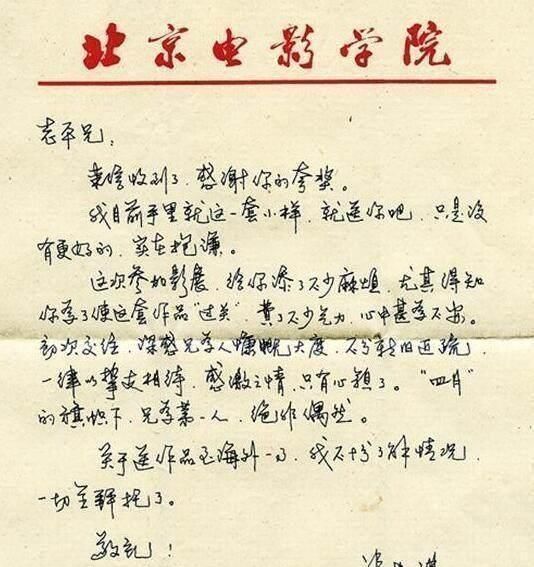 北京电影学院
志平兄：
来信收到了，感谢你的夸奖。
我目前手里就这一套小样，就送你吧，只是没
有更好的，实在抱谦。
这次参加影展，给你添了不少麻烦，尤其得知
你为了使这套作品“过关”，费了不少气力，心中甚为不安。
初次交往，深感兄为人慷慨大度，不分新旧近疏，
一律以挚友相待，感激之情，只有心领了。“四月”
的旗帜下，兄为第一人，绝非偶然。
关于送作品至海外一事，我不十分了解情况，
一切全拜托了。
敬礼！